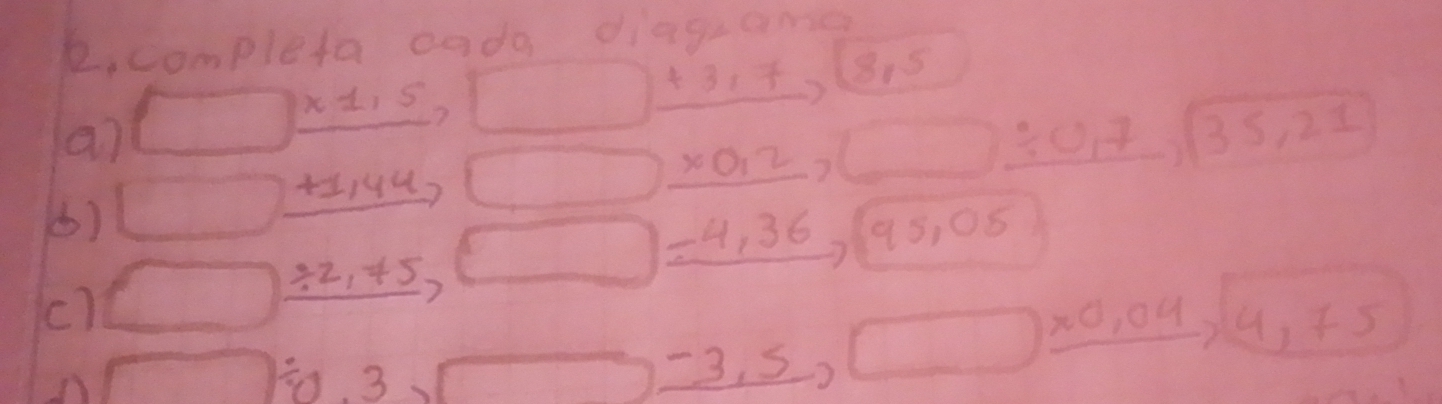 2. completa cada diagrama
a) x1,5 +3,7 8,5
b) +1,44 x0,2 ÷0,7 35,21
c) ÷2,75 -4,36 95,05
d) ÷0,3 -3,5 x0,04 4,75